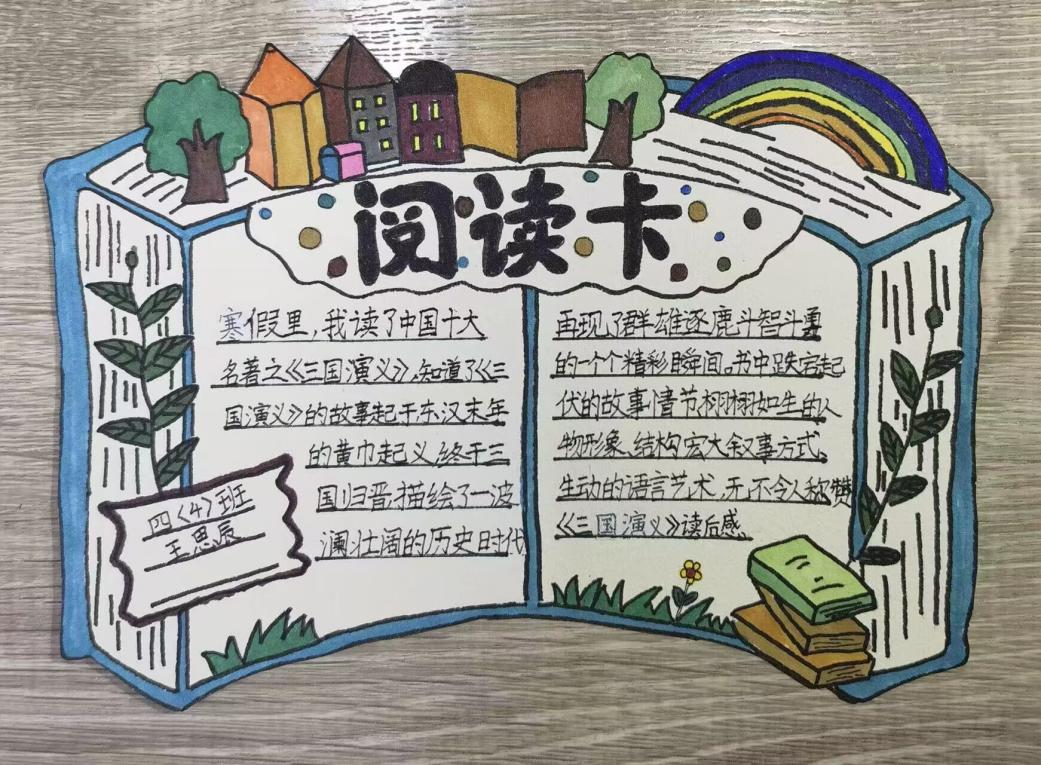 阅读卡
寒假里,我读了中国十大
名著之《三国演义》,知道了《三
国演义》的故事起于东汉末年
的黄巾起义,终于三
国归晋,描绘了一波
澜壮阔的历史时代
四〈4〉班
王思辰
再现了群雄逐鹿斗智斗勇
的一个个精彩瞬间。书中跌宕起
伏的故事情节栩栩如生的人
物形象、结构宏大叙事方式,
生动的语言艺术,无不令人称赞
《三国演义》读后感